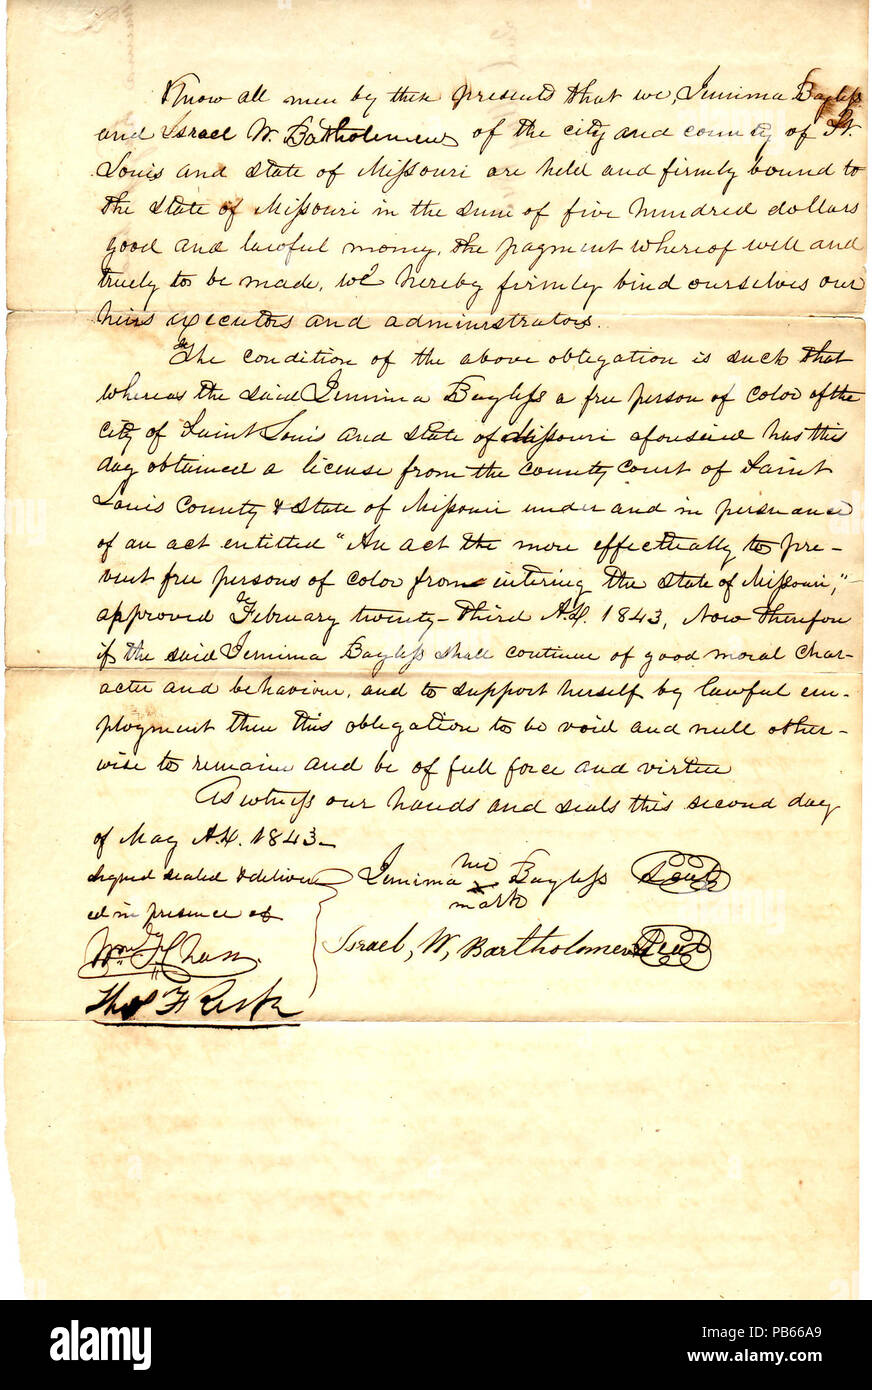 Know all men by these presents that we, Jemima Bayless
and Israel W. Bartholomew of the city and county of St.
Louis and state of Missouri are held and firmly bound to
the state of Missouri in the sum of five hundred dollars
good and lawful money, the payment whereof well and
truely to be made, we hereby firmly bind ourselves our
heirs executors and administrators.
The condition of the above obligation is such that
whereas the said Jemima Bayless a free person of color of the
city of Saint Louis and state of Missouri aforesaid has this
day obtained a license from the county court of Saint
Louis County & State of Missouri under and in persuance
of an act entitled "An act the more effectually to pre-
vent free persons of color from intering the state of Missouri,"
approved February twenty-third A.D. 1843, Now therefore
if the said Jemima Bayless shall continue of good moral char-
acter and behaviour, and to support herself by lawful em-
ployment then this obligation to be void and null other-
wise to remain and be of full force and virtue
As witness our hands and seals this second day
of May A.D. 1843-
signed sealed & deliver
ed in presence of
Jemima her x mark Bayless Seal
Israel, W, Bartholomew Seal
Wm
Thos F Risk
alamy
Image ID: PB66A9
www.alamy.com